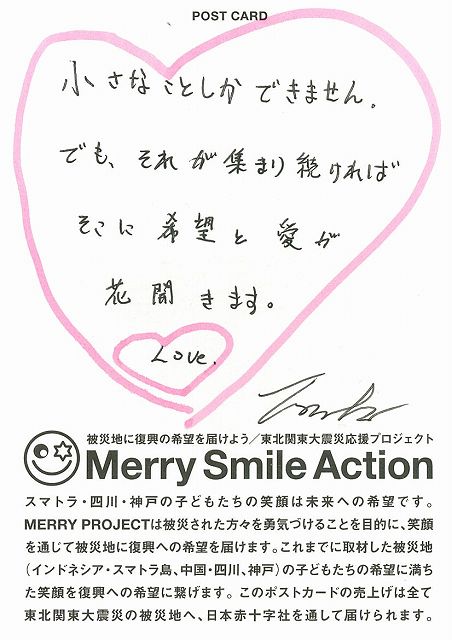 POST CARD
小さなことしかできません。
でも、それが集まり続ければ
そこに希望と愛が
花開きます。
Love.
被災地に復興の希望を届けよう／東北関東大震災応援プロジェクト
Merry Smile Action
スマトラ・四川・神戸の子どもたちの笑顔は未来への希望です。
MERRY PROJECTは被災された方々を勇気づけることを目的に、笑顔
を通じて被災地に復興への希望を届けます。これまでに取材した被災地
（インドネシア・スマトラ島、中国・四川、神戸）の子どもたちの希望に満ち
た笑顔を復興への希望に繋げます。このポストカードの売上げは全て
東北関東大震災の被災地へ、日本赤十字社を通して届けられます。